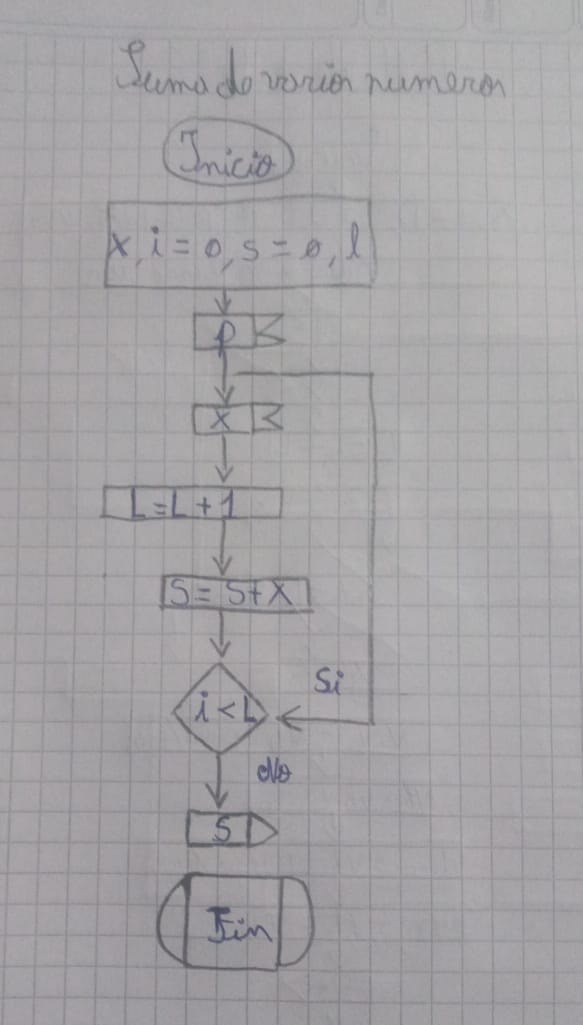 Suma de varios numeros
Inicio
x, i = 0, s = 0, l
P
X
L=L+1
S= S+X
i < L
Si
No
S
Fin